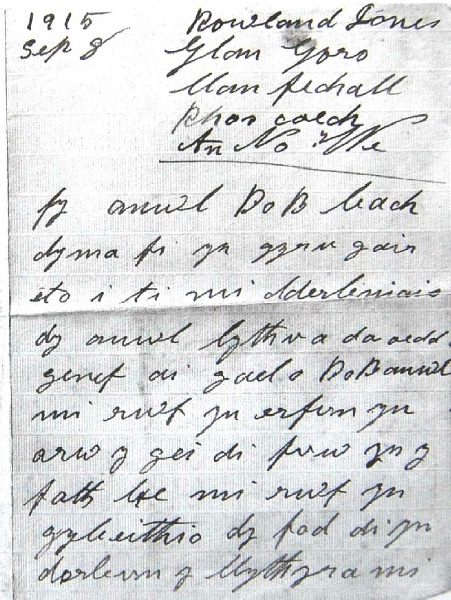 1915 Rowland Jones
Sep 8 Glan Goro
Llan fechall
Rhos goch
An No
fy anwl BoB bach
dyma fi yn gyru gair
eto i ti mi dderbeniais
dy anwl lythra da oedd
genef di gael o BoB anwl
mi rwf yn erfun yn
arw y gei di fuw yn y
fath le mi rwf yn
gybeithio dy fod di yn
darllun y llythyra mi